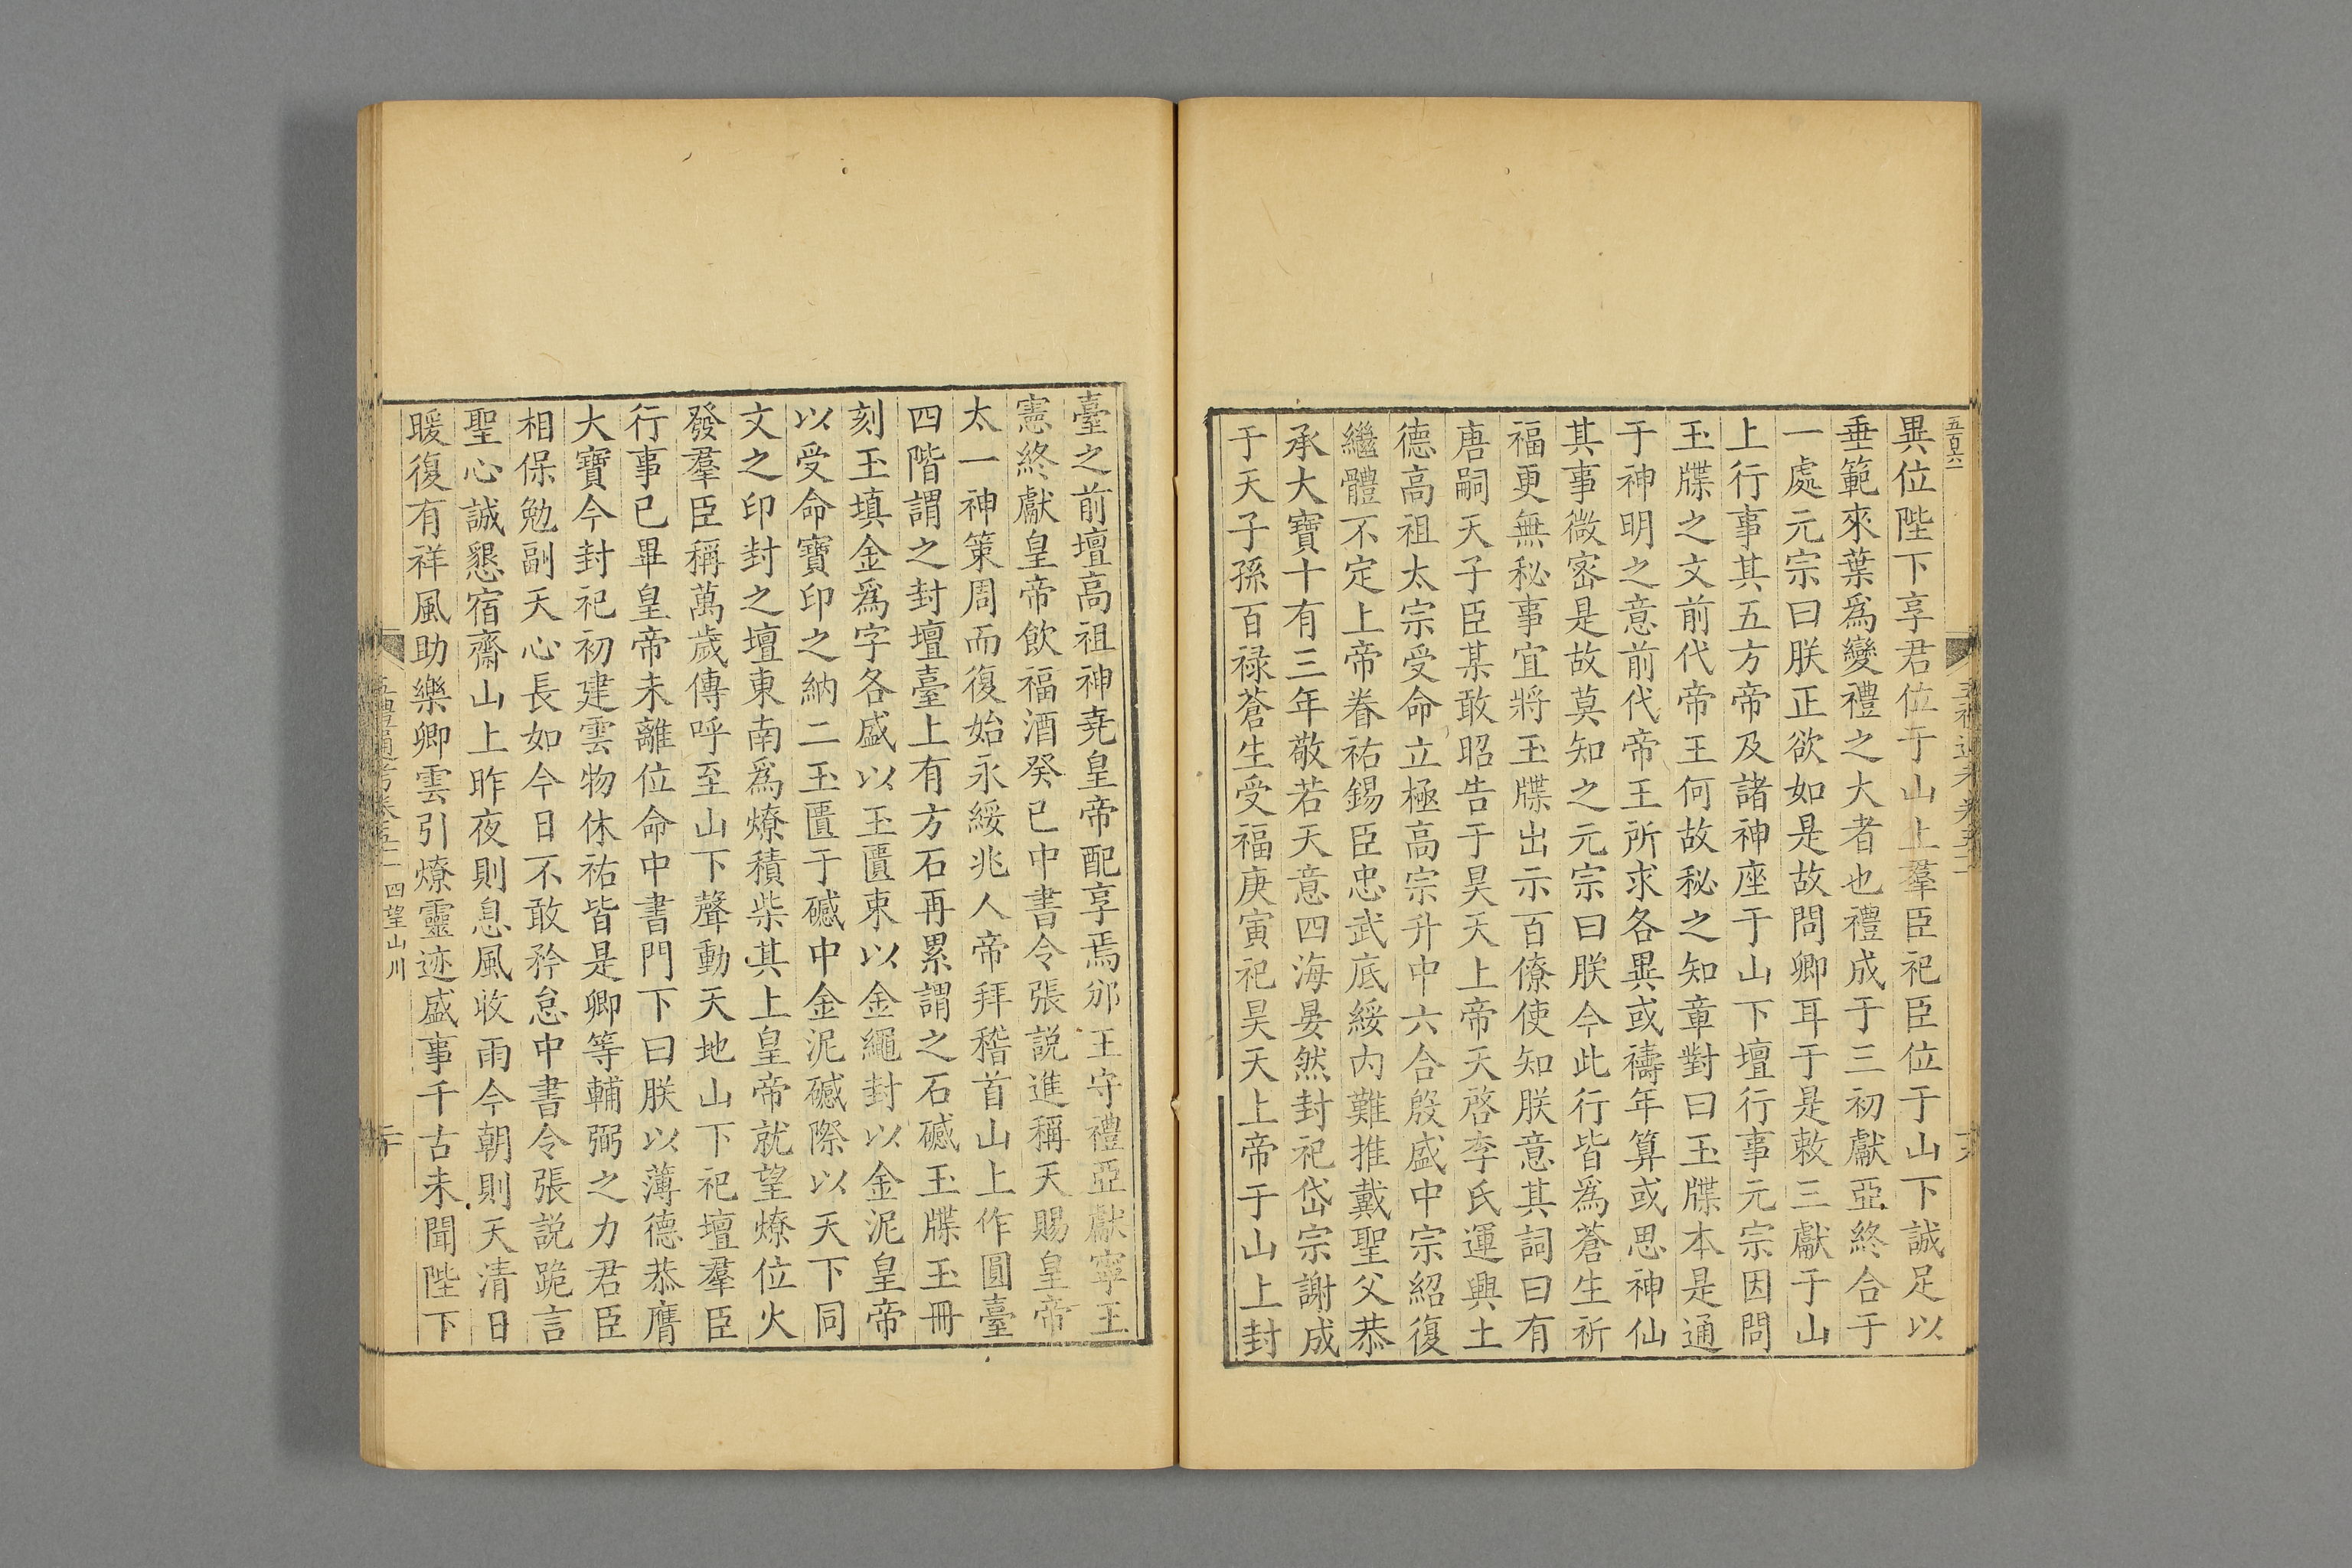 五百六
異位陛下享君位于山上羣臣祀臣位于山下誠足以
垂範來葉爲變禮之大者也禮成于三初獻亞終合于
一處元宗曰朕正欲如是故問卿耳于是敕三獻于山
上行事其五方帝及諸神座于山下壇行事元宗因問
玉牒之文前代帝王何故秘之知章對曰玉牒本是通
于神明之意前代帝王所求各異或禱年算或思神仙
其事微密是故莫知之元宗曰朕今此行皆爲蒼生祈
福更無秘事宜將玉牒出示百僚使知朕意其詞曰有
唐嗣天子臣某敢昭告于昊天上帝天啓李氏運興土
德高祖太宗受命立極高宗升中六合殷盛中宗紹復
繼體不定上帝眷祐錫臣忠武底綏内難推戴聖父恭
承大寶十有三年敬若天意四海晏然封祀岱宗謝成
于天子孫百禄蒼生受福庚寅祀昊天上帝于山上封
臺之前壇高祖神堯皇帝配享焉邠王守禮亞獻寧王
憲終獻皇帝飲福酒癸巳中書令張説進稱天賜皇帝
太一神策周而復始永綏兆人帝拜稽首山上作圓臺
四階謂之封壇臺上有方石再累謂之石䃭玉牒玉冊
刻玉填金爲字各盛以玉匱束以金繩封以金泥皇帝
以受命寶印之納二玉匱于䃭中金泥䃭際以天下同
文之印封之壇東南爲燎積柴其上皇帝就望燎位火
發羣臣稱萬歲傳呼至山下聲動天地山下祀壇羣臣
行事已畢皇帝未離位命中書門下曰朕以薄德恭膺
大寶今封祀初建雲物休祐皆是卿等輔弼之力君臣
相保勉副天心長如今日不敢矜怠中書令張説跪言
聖心誠懇宿齋山上昨夜則息風收雨今朝則天清日
暖復有祥風助樂卿雲引燎靈迹盛事千古未聞陛下
四望山川